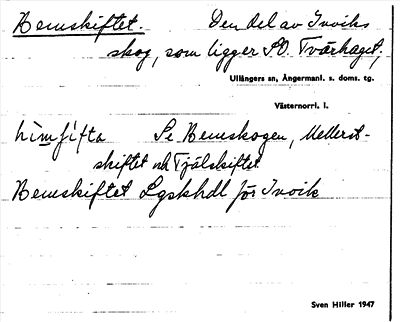 Hemskiftet. Den del av Invíks
skog, som ligger S.O. Tvärhaget,
Ullångers sn, Ångermanl. s. doms. tg.
Västernorrl. l.
hìmʃifta Se Hemskogen, Mellerst-
skiftet och Tjälskiftet
Hemskiftet Lgskhdl för Invik
Sven Hiller 1947